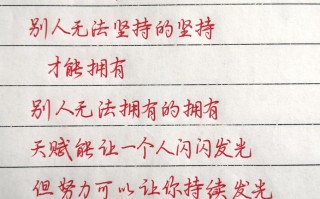 别人无法坚持的坚持
才能拥有
别人无法拥有的拥有
天赋能让一个人闪闪发光
但努力可以让你持续发光